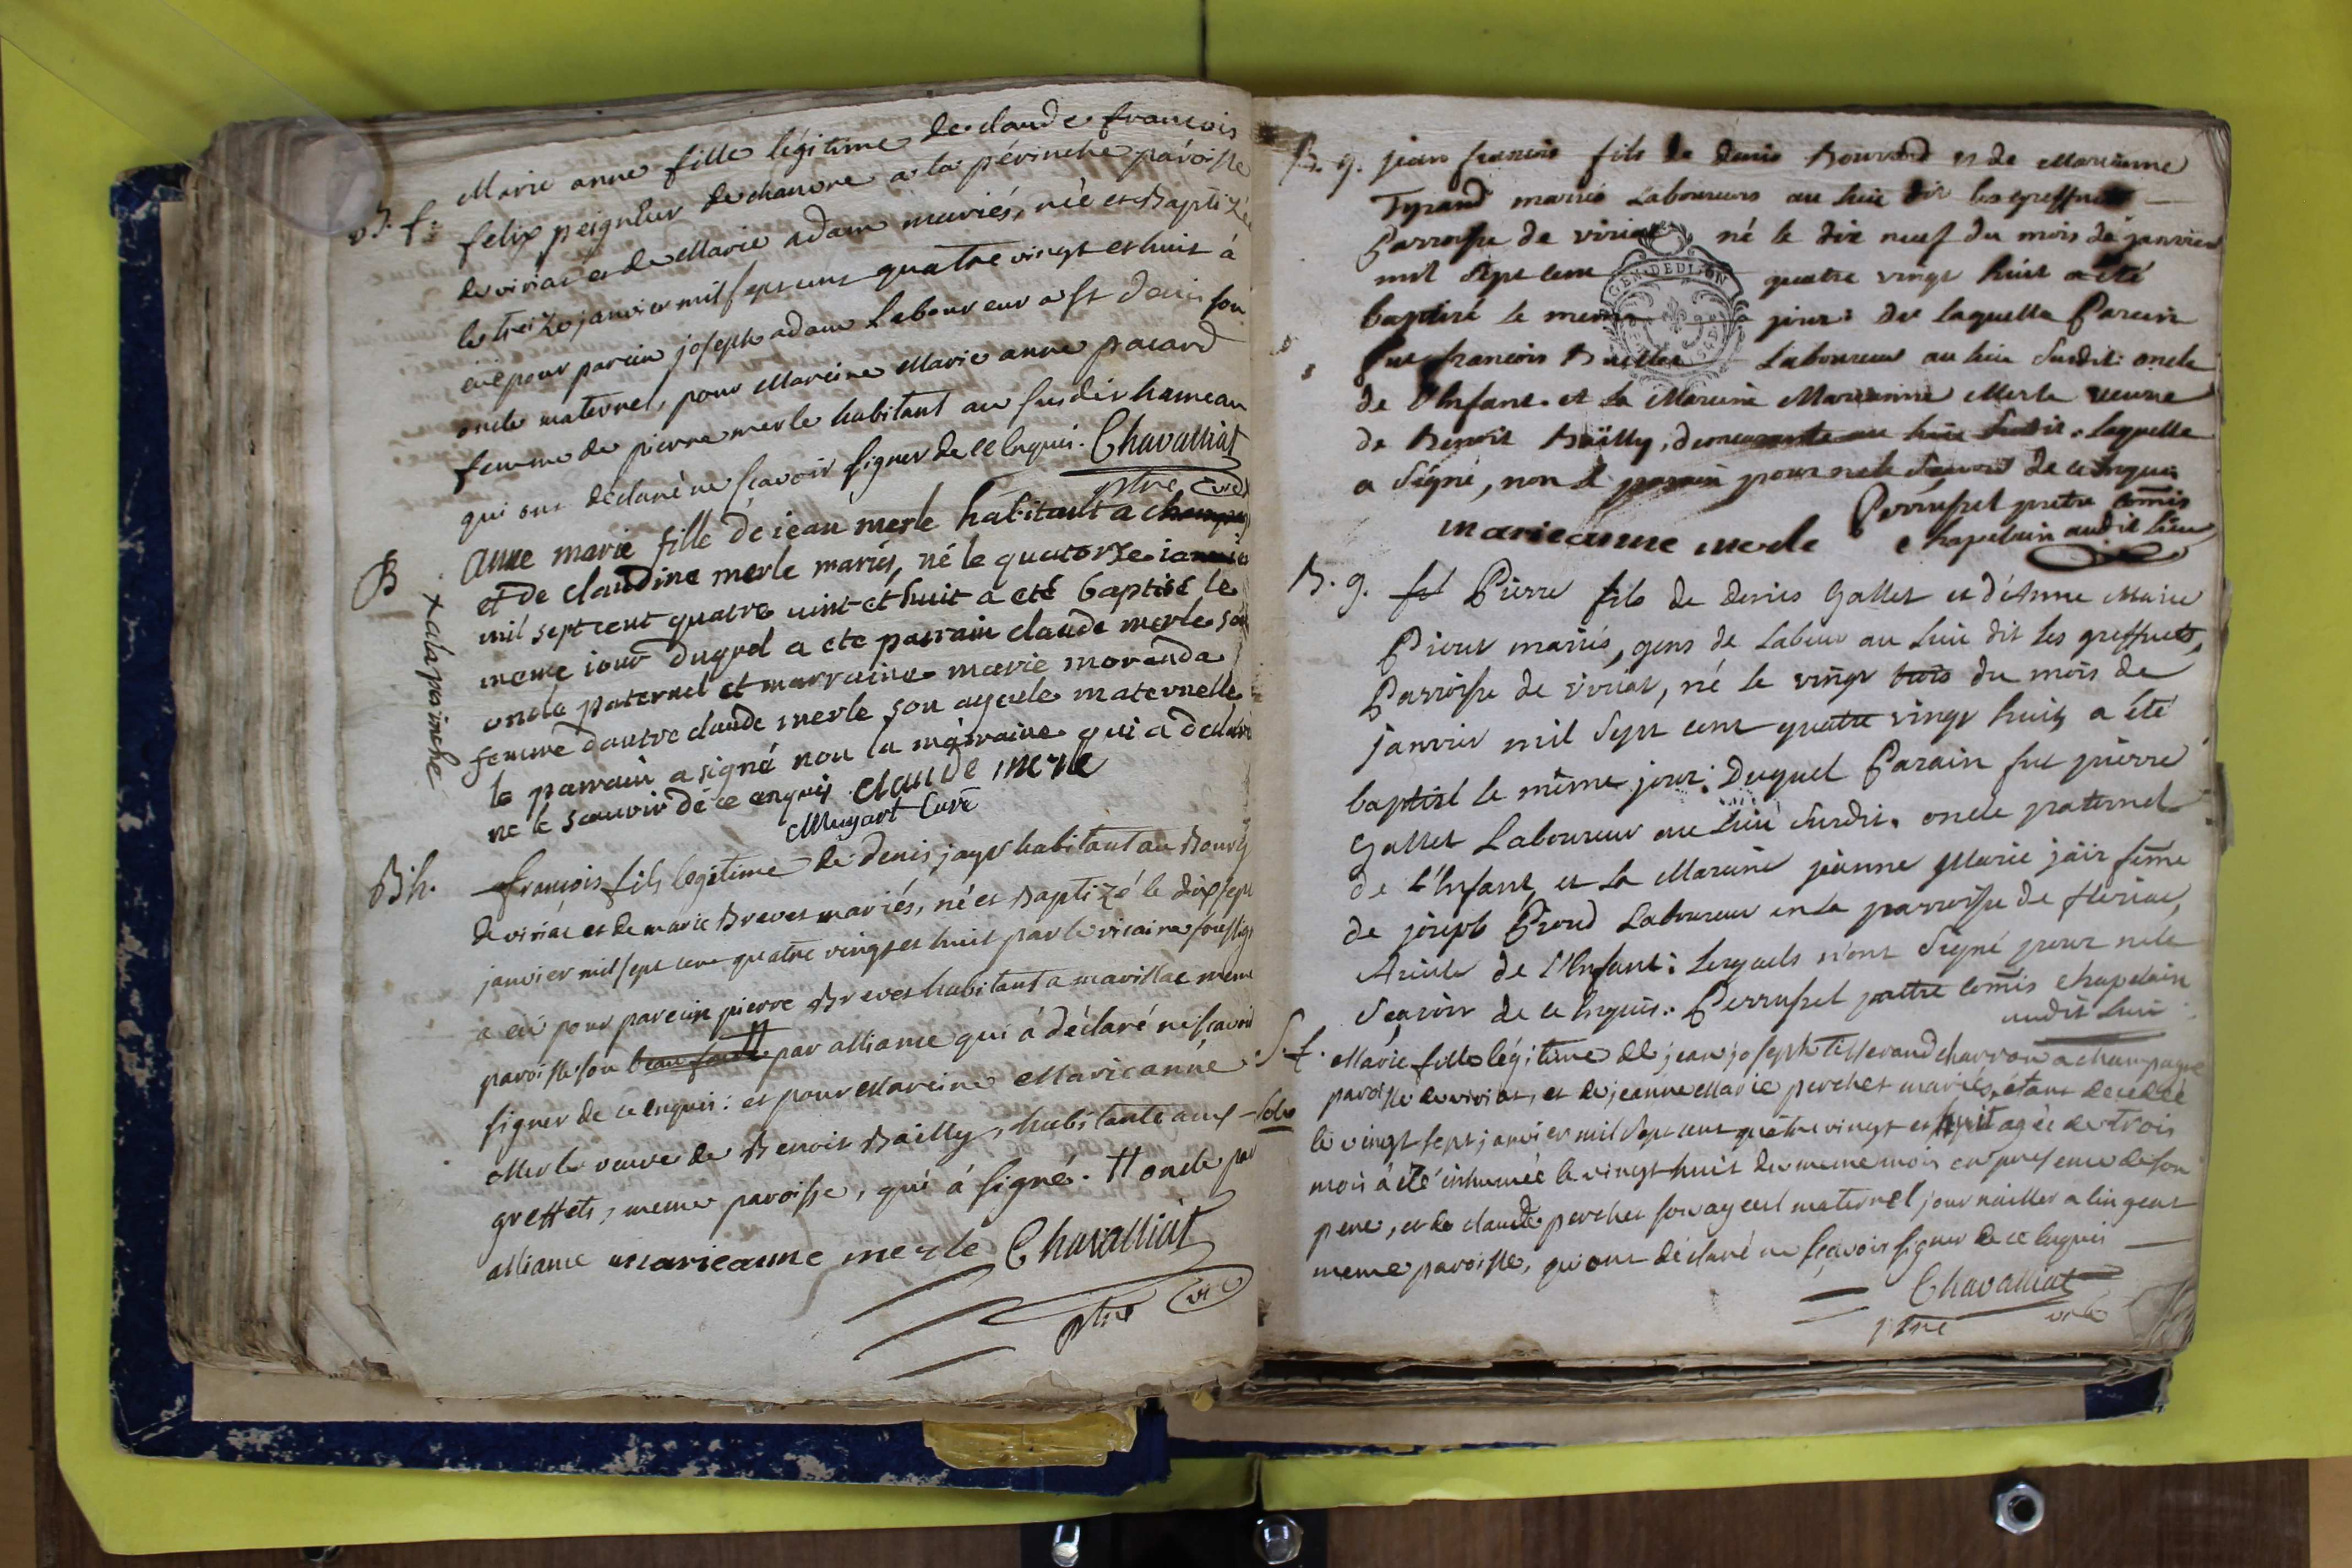 B. f. Marie anne fille légitime de claude françois
felix peigneur de chanvre a la périnche paroisse
de viriat et de Marie adam mariés, née et Baptizée
le treize janvier mil sept cent quatre vingt et huit à
eu pour parein joseph adam Laboureur a St denis son
oncle maternel, pour Mareine Marie anne pacard
femme de pierre merle habitant au susdit hameau
qui ont déclaré ne sçavoir signer de ce Enquis. Chavalliat
ptre vic
B anne marie fille de iean merle habitant a
x a la perinche
et de claudine merle mariés, né le quatorze ianvier
mil sept cent quatre vint et huit a eté baptisé le
meme iour duquel a ete parrain claude merle son
oncle paternel et marraine marie moranda
femme dautre claude merle son ayeule maternelle
le parrain a signé non la marraine qui a declaré
ne le scauvir de ce enquis claude merle
Mugart Curé
B. h. françois fils legitime de denis jayr habitant au Bourg
de viriat et de marie Brevet mariés, né et Baptizé le dix sept
janvier mil sept cent quatre vingt et huit par le vicaire soussigné
a eu pour parein pierre Brevet habitant a marillac meme
paroisse son par alliance qui à déclaré ne sçavoir
signer de ce enquis: et pour Mareine Marie anne
Merle veuve de Benoit Bailly, habitante aux
greffets, meme paroisse, qui à signé. # oncle par
alliance marieanne merle Chavalliat
ptre vic
B. g. jean francois fils de denis Bouvard et de Marianne
Tyrand mariés Laboureurs au lieu dit les greffets
Parroisse de viriat né le dix neuf du mois de janvier
mil sept cent quatre vingt huit a été
baptisé le meme jour: de laquelle Parein
GEN. DE DIJON
fut francois Laboureur au lieu susdit: oncle
de l'Enfant. et la Mareine Marianne Merle veuve
de Benoit Bailly, demeurante au lieu susdit. laquelle
a signé, non le parein pour ne le savoir de ce enquis
Perruset pretre comis
marieanne merle chapelain audit lieu
B. g. Pierre fils de denis Gallet et d'Anne Marie
Pirout mariés, gens de Labeur au lieu dit les greffets,
Parroisse de viriat, né le vingt trois du mois de
janvier mil sept cent quatre vingt huit, a été
baptisé le même jour: Duquel Parain fut pierre
Gallet Laboureur au lieu susdit. oncle paternel
de l'Enfant, et la Mareine jeanne Marie jair feme
de joseph Proud Laboureur en la parroisse de fleriat,
de l'Enfant: Lesquels n'ont signé pour ne le
sçavoir de ce Enquis. Perruset prettre comis chapelain
audit lieu
S. f. Marie fille légitime de jean joseph tisserand charron a champagne
paroisse de viriat, et de jeanne Marie perchet mariés, étant decedée
le vingt sept janvier mil sept cent quatre vingt et huit agée de trois
mois à été inhumée le vingt huit du meme mois en presence de son
pere, et de claude perchet son ayeul maternel journailler a lingent
meme paroisse, qui ont déclaré ne sçavoir signer de ce enquis
Chavalliat
ptre vic